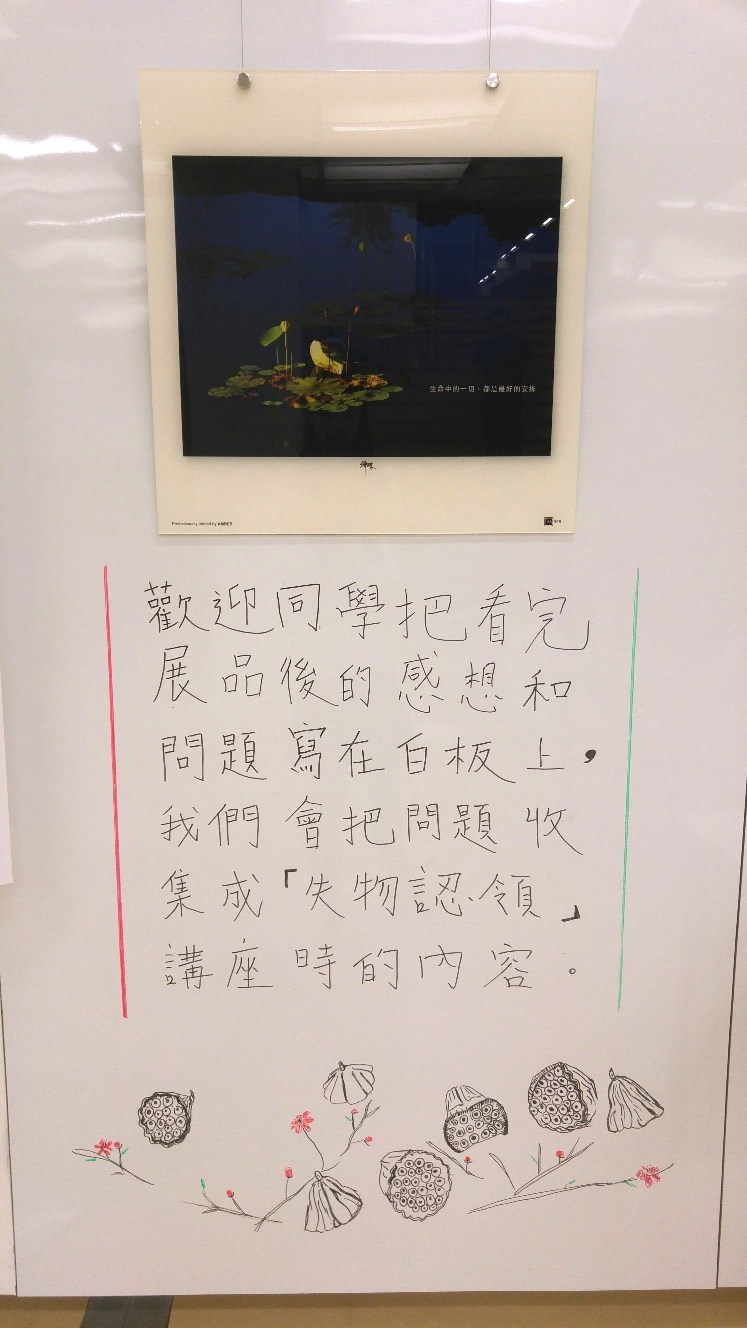 生命中的一切，都是最好的安排
Professionally printed by KAIBER
歡迎同學把看完
展品後的感想和
問題寫在白板上，
我們會把問題收
集成「失物認領」
講座時的內容。